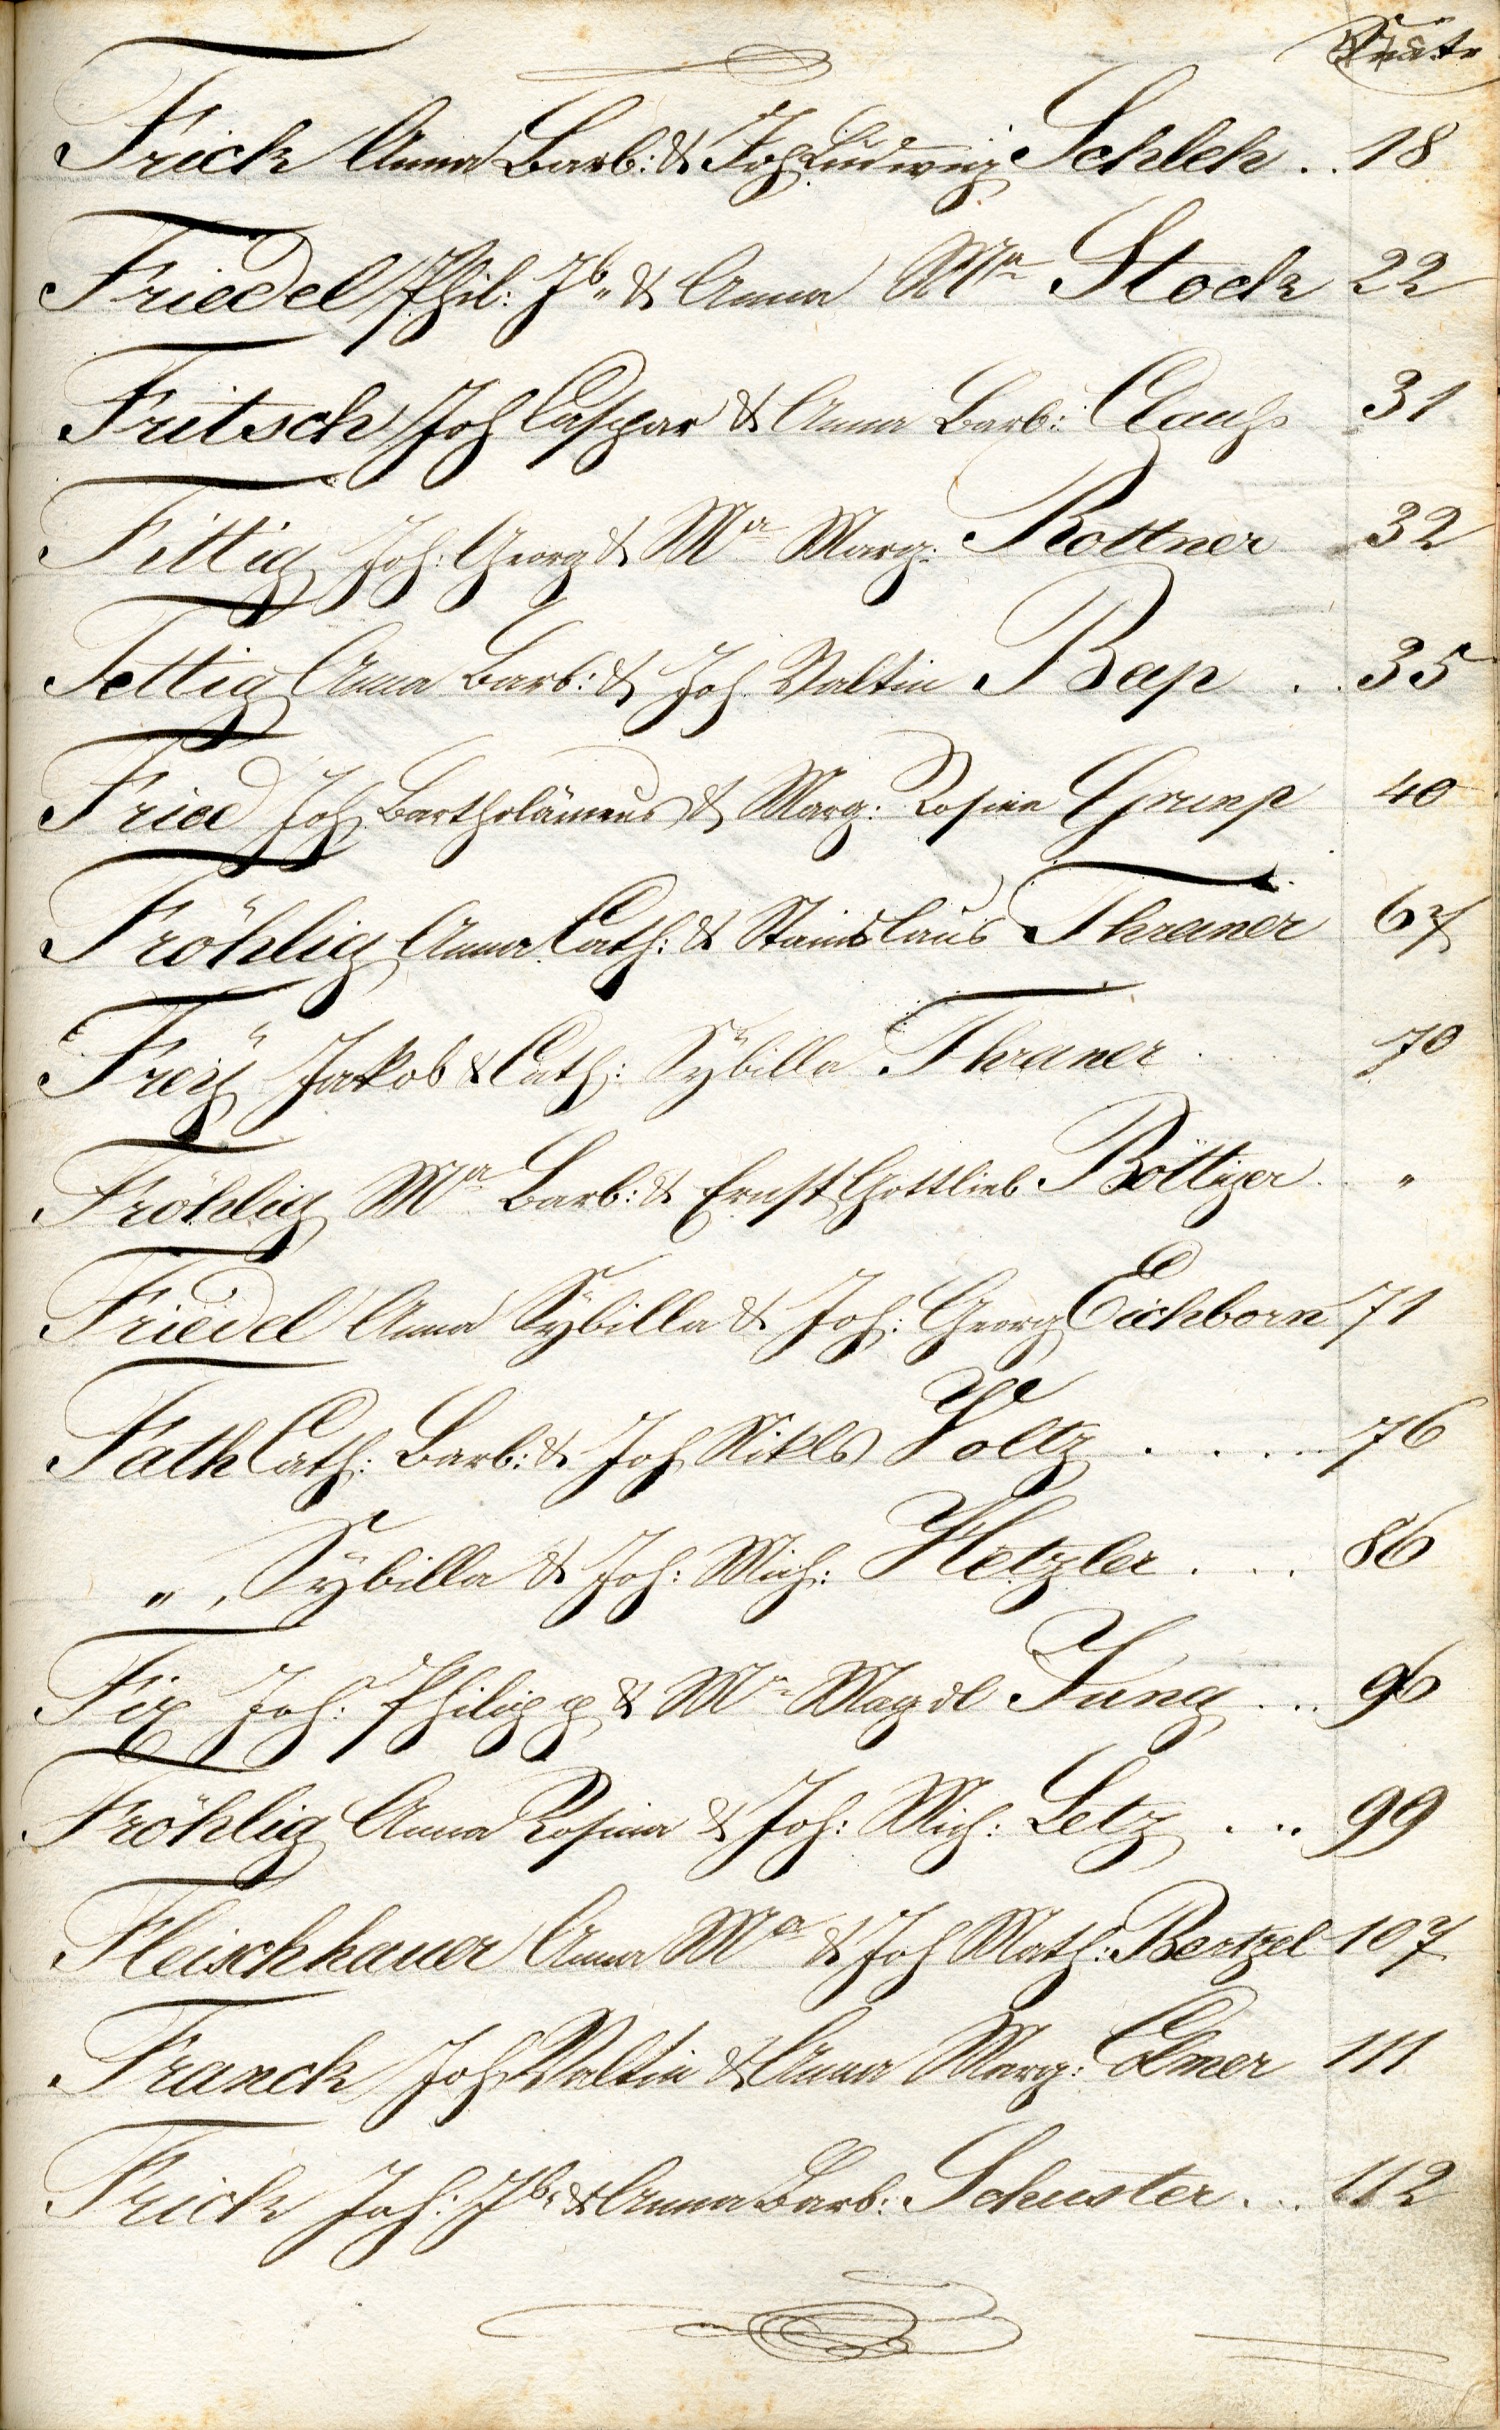 Seite
Frick Anna Barb: & Joh. Ludwig Schleh .. 18
Friedel Phil: Jb. & Anna Ma Stock 22
Fritsch Joh Caspar & Anna Barb: Clauß 31
Fittig Joh: Georg & Ma Marg: Rottner 32
Fettig Anna Barb: & Joh. Valtin Bap .. 35
Fried Joh. Bartholämeus & Marg: Rosina Grump 40
Fröhlig Anna Cath: & Stanislaus Thraner 67
Freÿ Jakob & Cath: Sÿbilla Thraner 70
Fröhlig Ma Barb: & Ernst Gottlieb Böttiger "
Friedel Anna Sÿbilla & Joh: Georg Eichborn 71
Fath Cath: Barb: & Joh Nikls Voltz ..... 76
" , Sÿbilla & Joh: Mich: Hetzler ... 86
Fix Joh: Philipp & Ma Magdl Jung ... 96
Fröhlig Anna Rosina & Joh: Mich: Letz ... 99
Fleischhauer Anna Ma & Joh Math: Bertzel 107
Franck Joh. Valtin & Anna Marg: Elmer 111
Frick Joh: Jb. & Anna Barb: Schuster ... 112